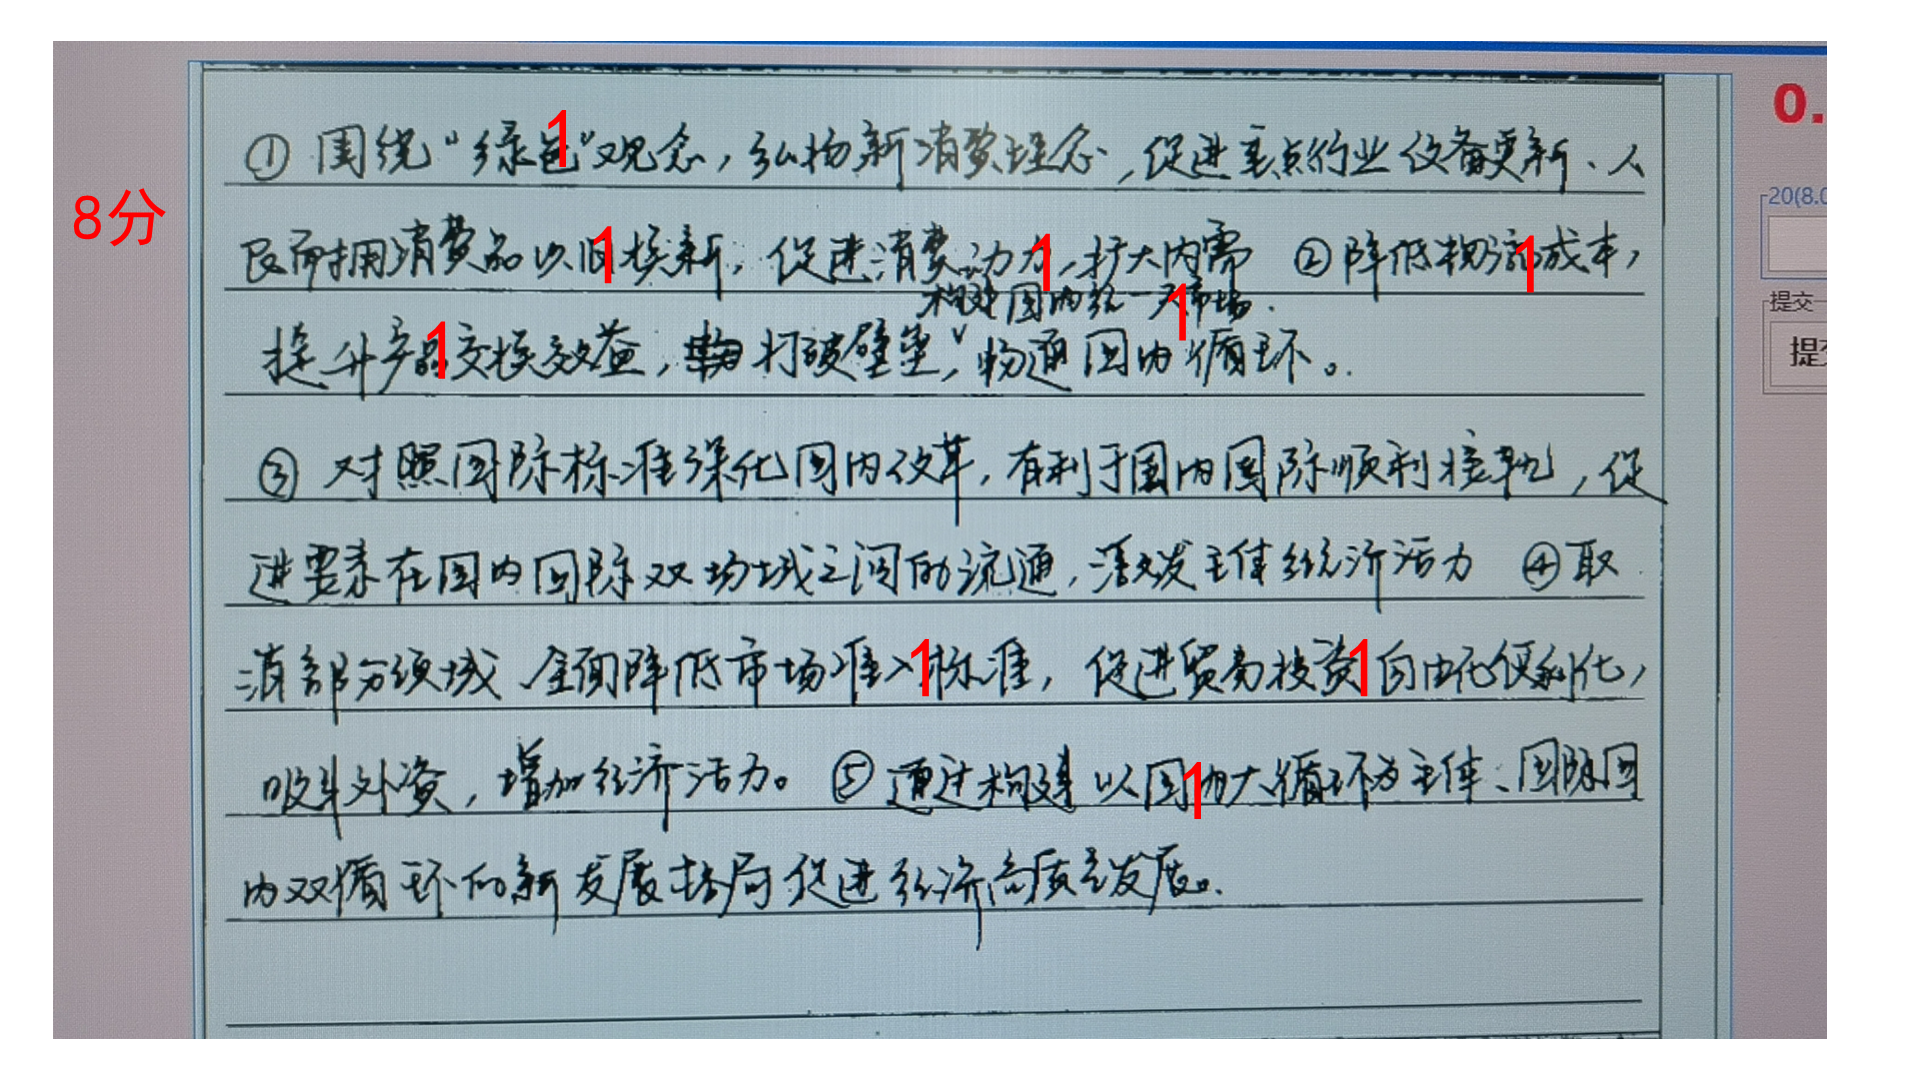 ①围绕“绿色”观念，弘扬新消费理念，促进重点行业设备更新、人
民耐用消费品以旧换新，促进消费动力，扩大内需 ②降低物流成本，
构建国内统一大市场.
提升产品交换效益，打破壁垒，畅通国内循环。
③ 对照国际标准深化国内改革，有利于国内国际顺利接轨，促
进要素在国内国际双场域之间的流通，活发主体经济活力 ④取
消部分领域、全面降低市场准入标准，促进贸易投资自由化便利化，
吸纳外资，增加经济活力。⑤通过构建以国内大循环为主体、国际国
内双循环的新发展格局促进经济高质量发展。
8分
1
1
1
1
1
1
1
1
1
0.
20(8.0
提交
提交